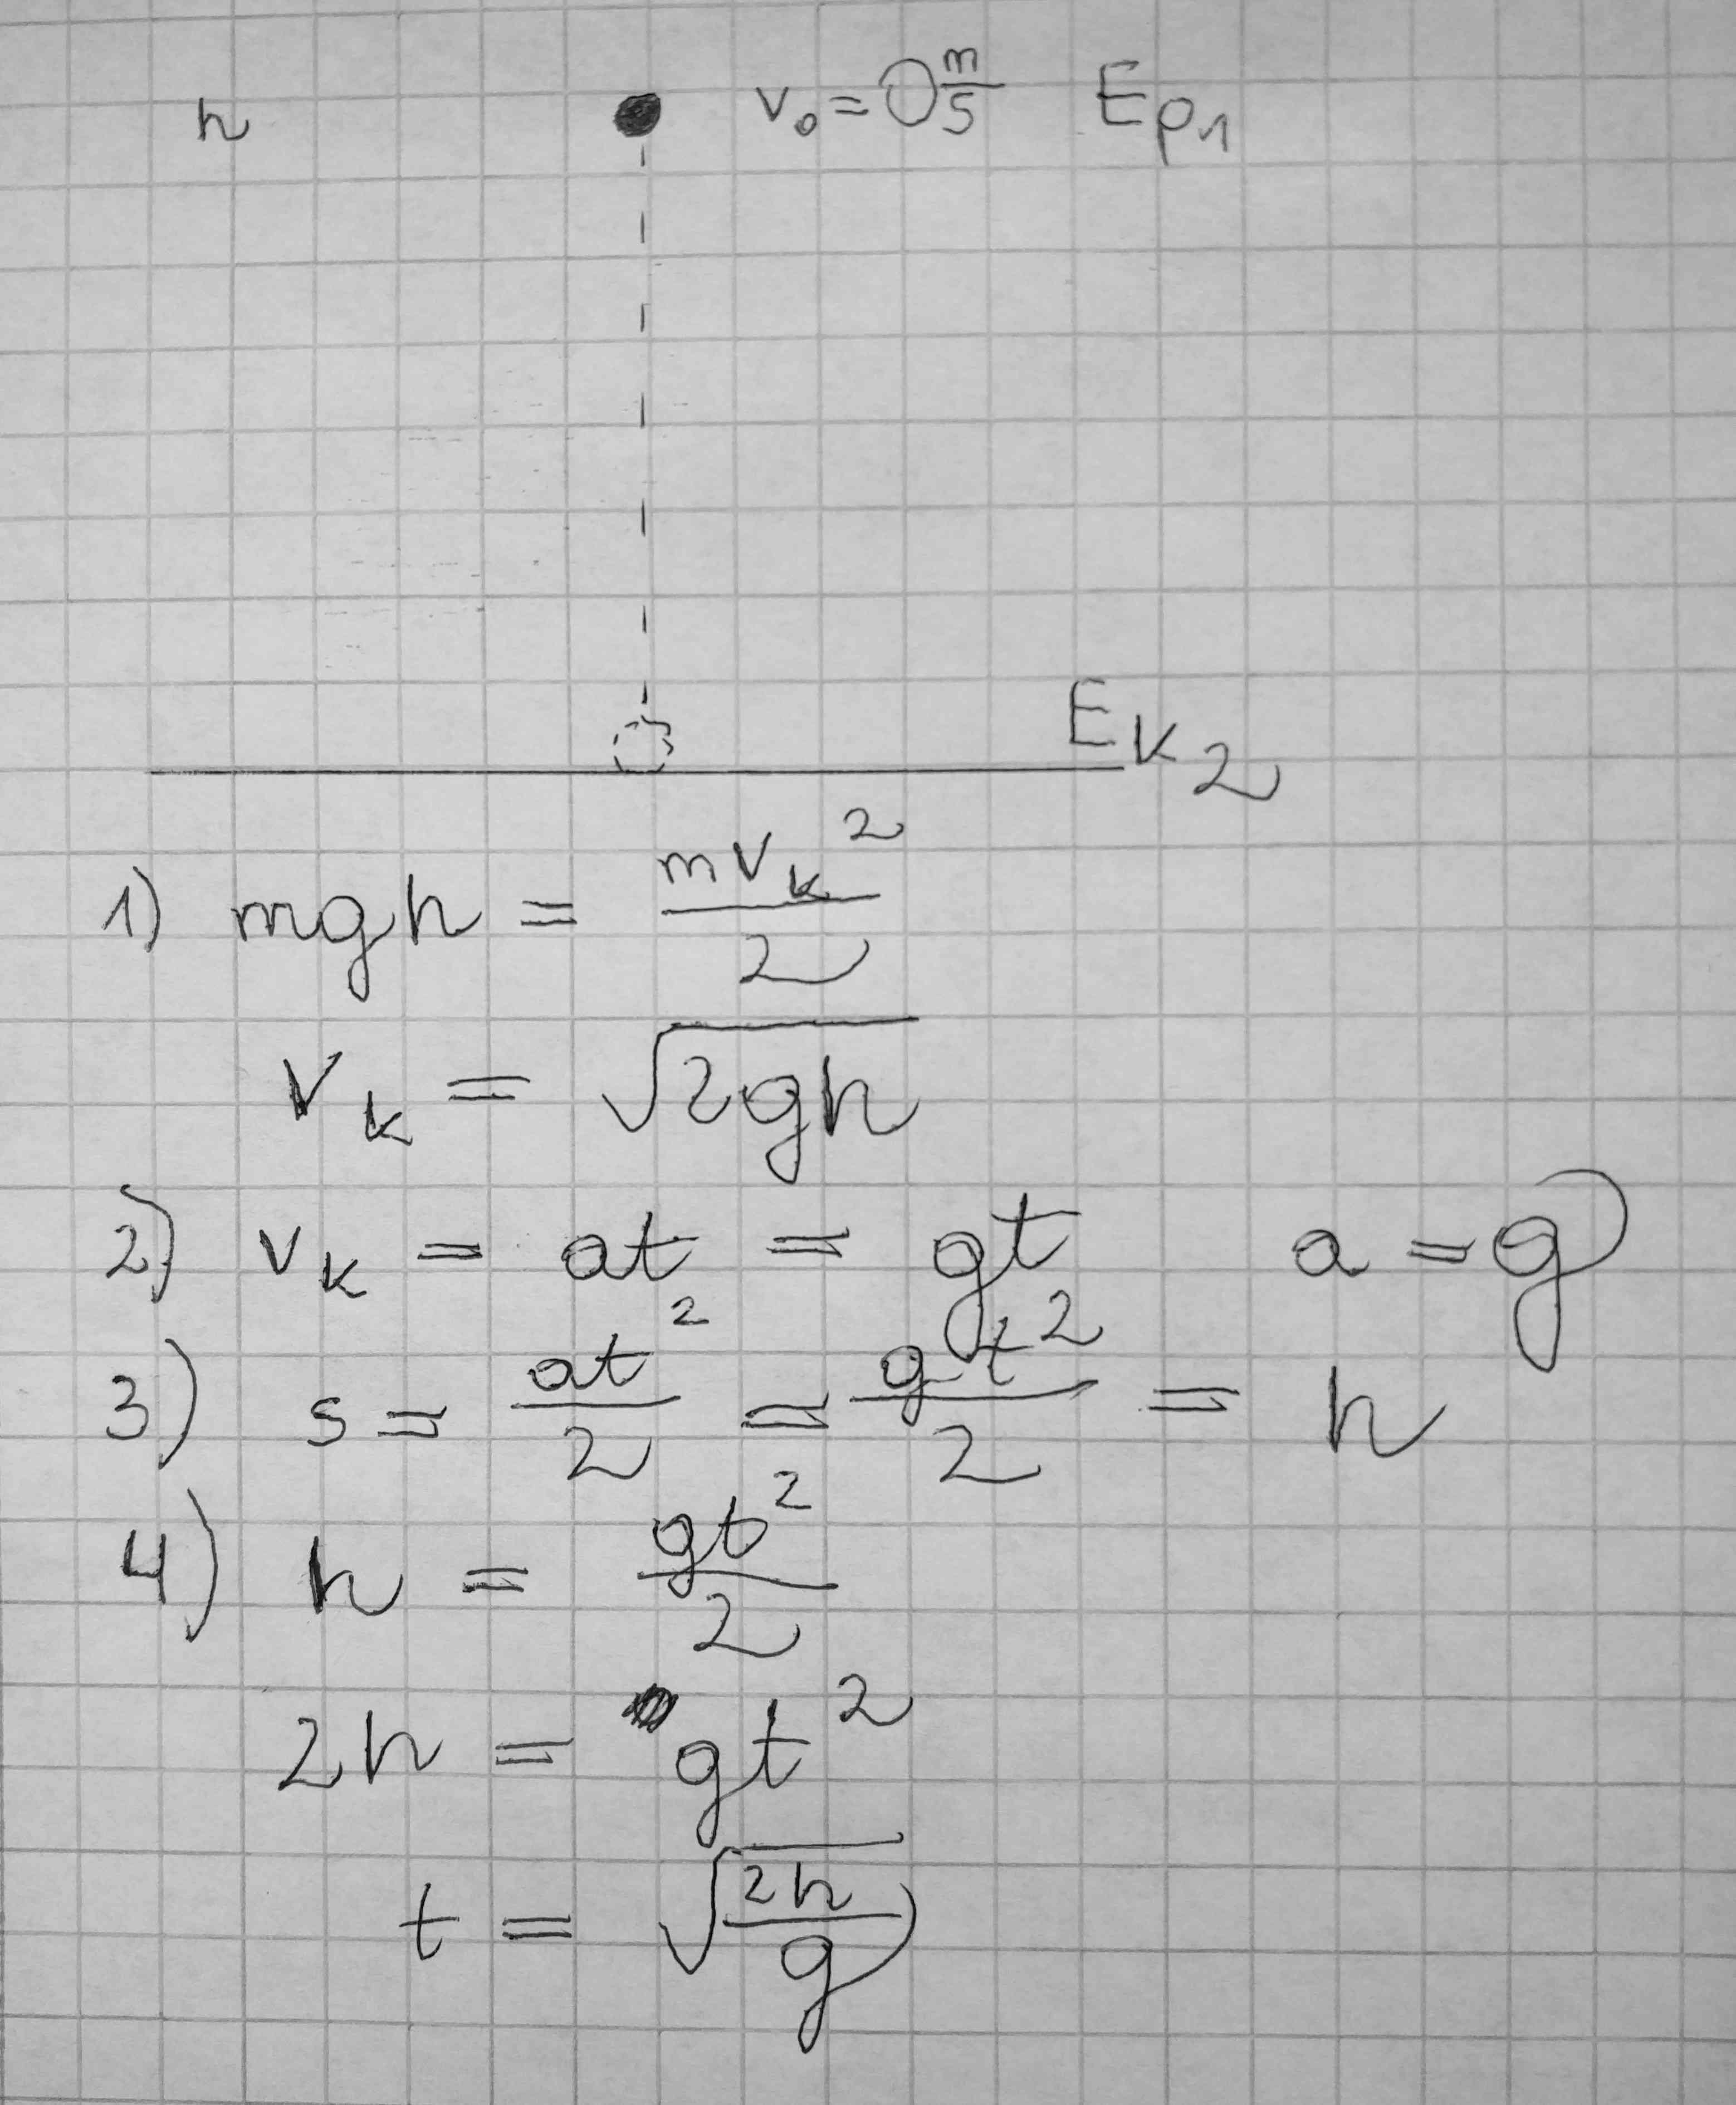 h v₀ = 0 m/s Ep₁
Ek₂
1) mgh = mvₖ²/2
vₖ = √(2gh)
2) vₖ = at = gt a = g
3) s = at²/2 = gt²/2 = h
4) h = gt²/2
2h = gt²
t = √(2h/g)